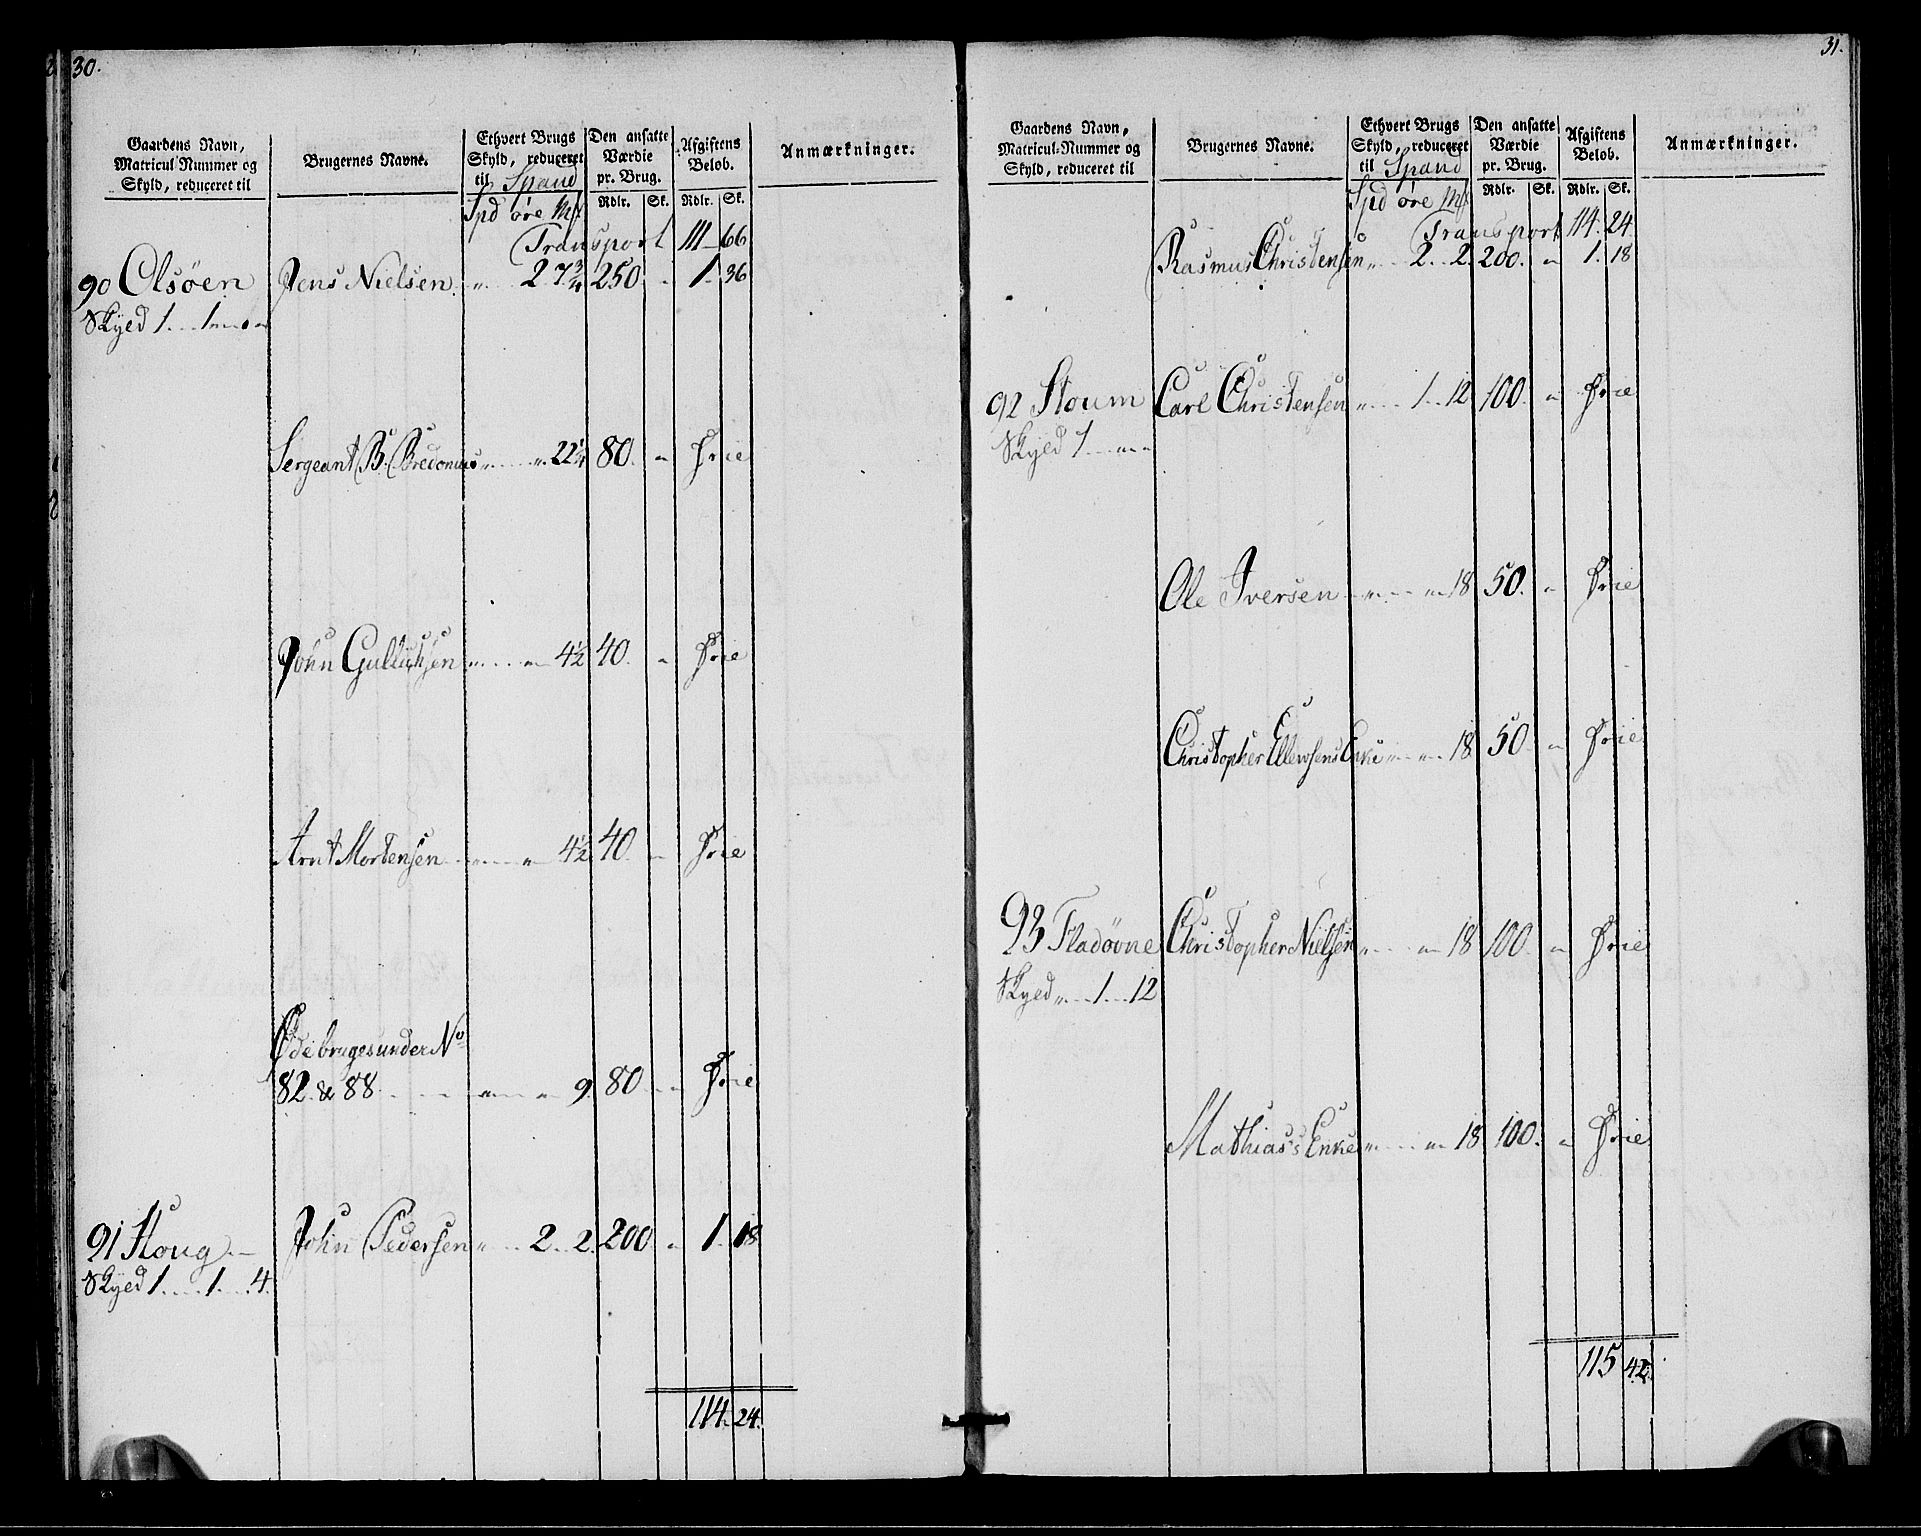 30.
Gaardens Navn, Matricul-Nummer og Skyld, reduceret til
Brugernes Navne.
Ethvert Brugs Skyld, reduceret til Spand
Spd øre Mk
Den ansatte Værdie pr. Brug.
Rdlr. Sk.
Afgiftens Beløb.
Rdlr. Sk.
Anmærkninger.
Transport 111 66
90 Olsøen Jens Nielsen „ 2 7¾ 250 „ 1 36
Skyld 1 1 „
Sergeant B. Bredonius „ „ 22¼ 80 „ Frie
John Gullichsen „ „ 4½ 40 „ Frie
Arnt Mortensen „ „ 4½ 40 „ Frie
Øde bruges under No
82 & 88 „ „ 9 80 „ Frie
91 Houg John Pedersen „ 2 2 200 „ 1 18
Skyld 1 1 4
114 24
31.
Gaardens Navn, Matricul-Nummer og Skyld, reduceret til
Brugernes Navne.
Ethvert Brugs Skyld, reduceret til Spand
Spd øre Mk
Den ansatte Værdie pr. Brug.
Rdlr. Sk.
Afgiftens Beløb.
Rdlr. Sk.
Anmærkninger.
Transport 114 24
Rasmus Christensen „ 2 2 200 „ 1 18
92 Houm Carl Christensen „ 1 12 100 „ Frie
Skyld 1 „ „
Ole Iversen „ „ 18 50 „ Frie
Christopher Ellevsens Enke „ „ 18 50 „ Frie
93 Fladøvne Christopher Nielsen „ „ 18 100 „ Frie
Skyld „ 1 12
Mathias's Enke „ „ 18 100 „ Frie
115 42